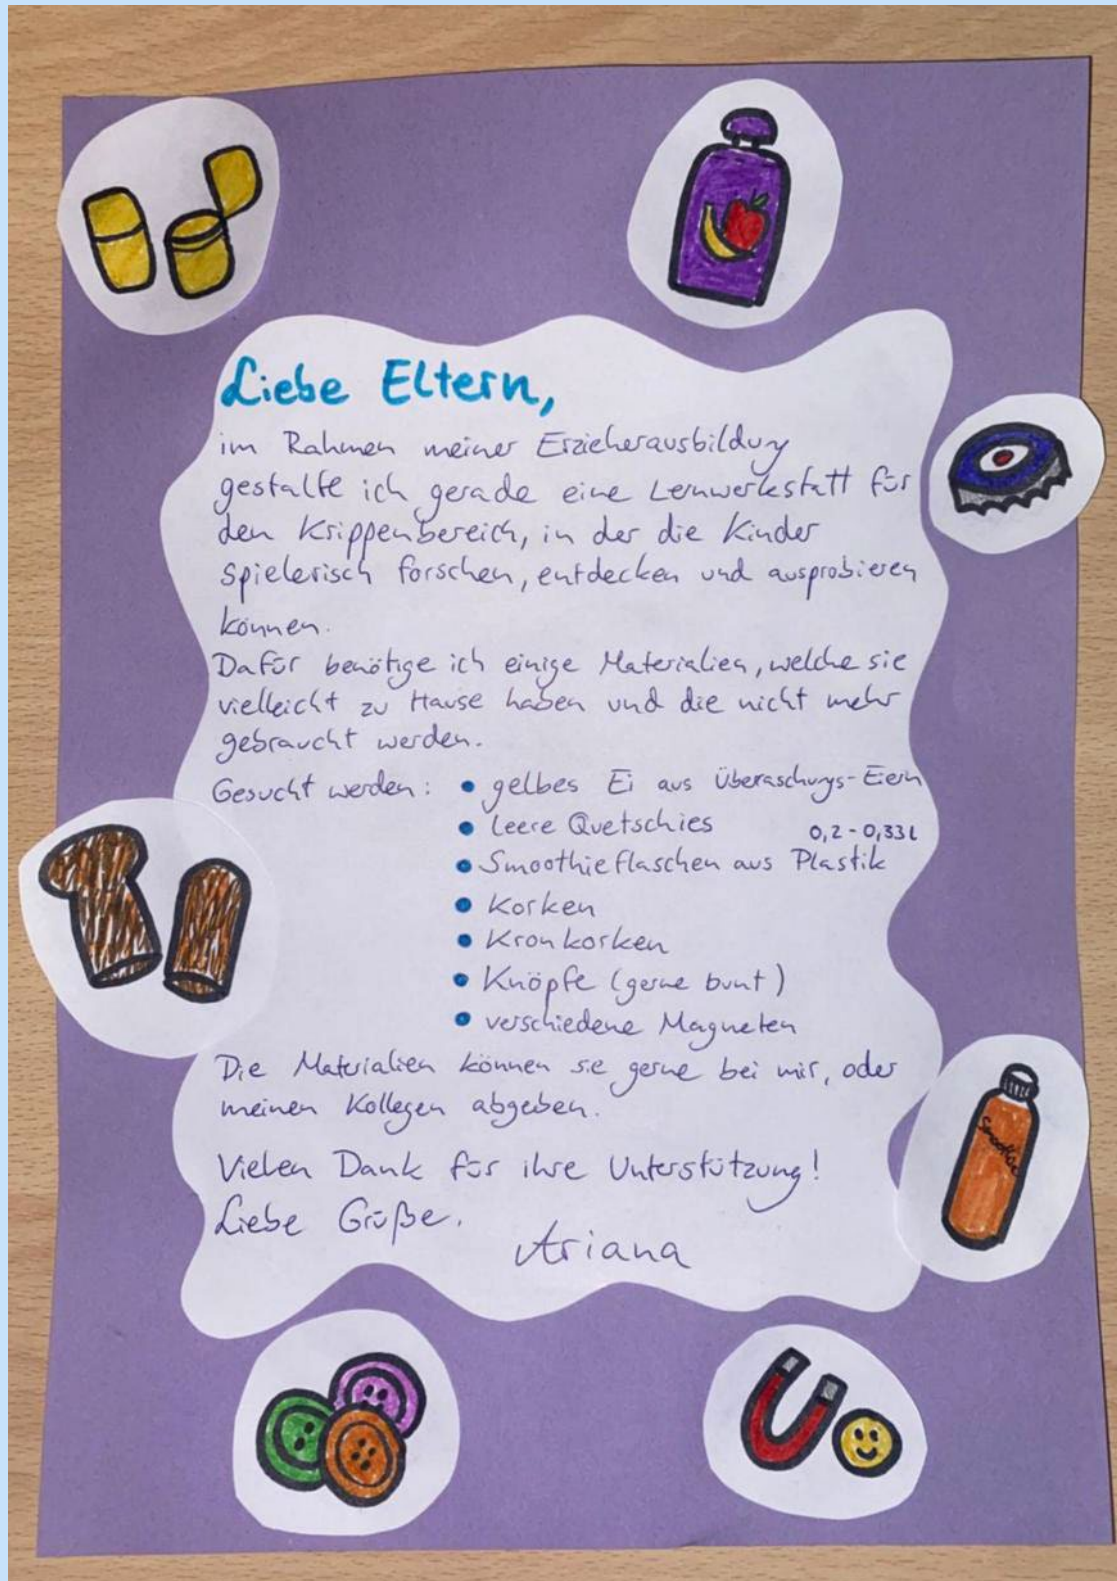 Liebe Eltern,
im Rahmen meiner Erzieherausbildung
gestalte ich gerade eine Lernwerkstatt für
den Krippenbereich, in der die Kinder
spielerisch forschen, entdecken und ausprobieren
können.
Dafür benötige ich einige Materialien, welche sie
vielleicht zu Hause haben und die nicht mehr
gebraucht werden.
Gesucht werden: • gelbes Ei aus Überaschungs-Eiern
• leere Quetschies
0,2 - 0,33 l
• Smoothieflaschen aus Plastik
• Korken
• Kronkorken
• Knöpfe (gerne bunt)
• verschiedene Magneten
Die Materialien können sie gerne bei mir, oder
meinen Kollegen abgeben.
Vielen Dank für ihre Unterstützung!
Liebe Grüße.
Ariana
Smoothie